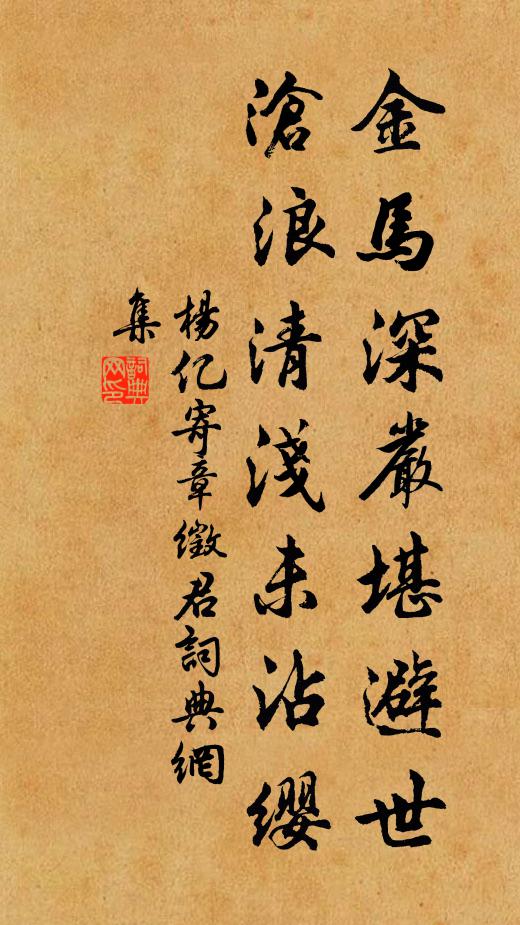 金馬深嚴堪避世
滄浪清淺未沾纓
楊亿寄章徵君詞典網
集
詞典
网印